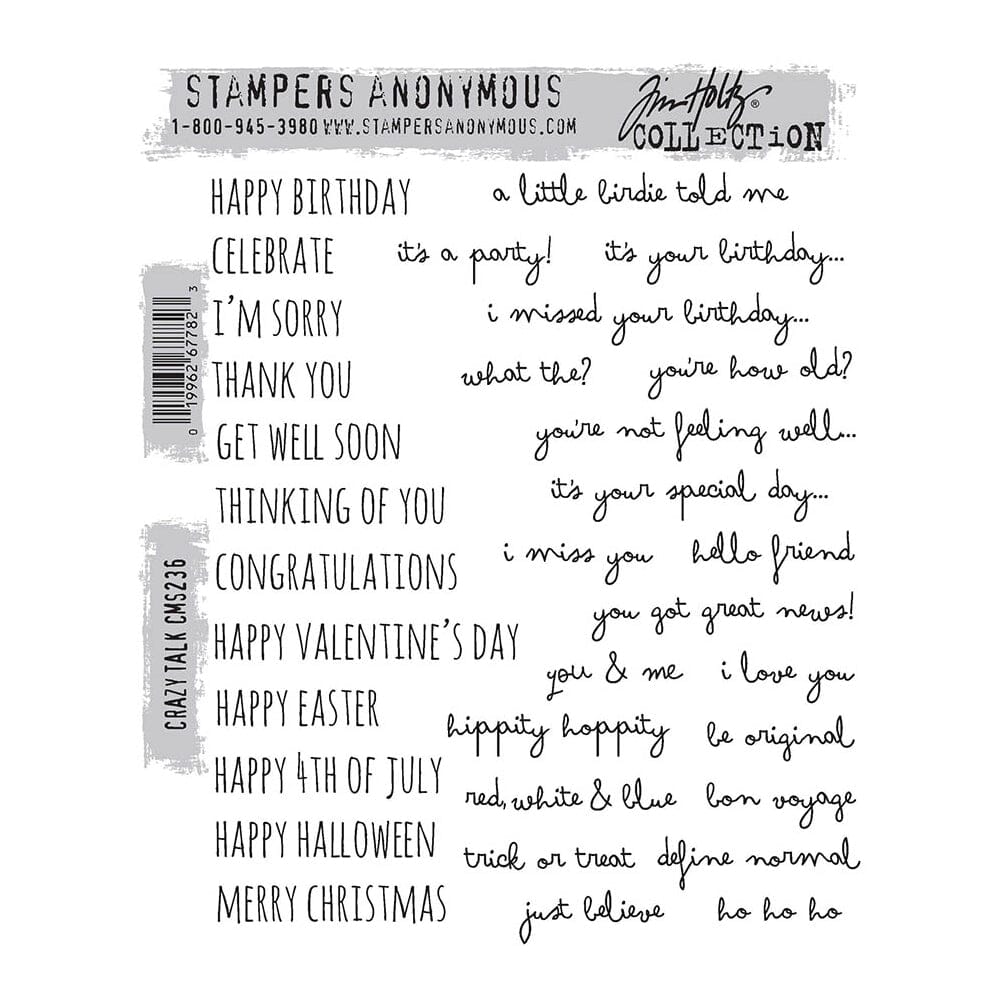 STAMPERS ANONYMOUS
1-800-945-3980 WWW.STAMPERSANONYMOUS.COM
Tim Holtz®
COLLECTiON
HAPPY BIRTHDAY a little birdie told me
CELEBRATE it's a party! it's your birthday...
I'M SORRY i missed your birthday...
THANK YOU what the? you're how old?
GET WELL SOON you're not feeling well...
THINKING OF YOU it's your special day...
CONGRATULATIONS i miss you hello friend
you got great news!
HAPPY VALENTINE'S DAY you & me i love you
HAPPY EASTER hippity hoppity be original
HAPPY 4TH OF JULY red, white & blue bon voyage
HAPPY HALLOWEEN trick or treat define normal
MERRY CHRISTMAS just believe ho ho ho
0 19962 67782 3
CRAZY TALK CMS236